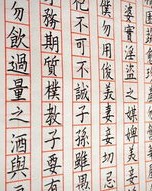 婆實淫盜之媒婢美妾
僕勿用俊美妻妾切忌
犯不可不誠子孫雖愚
務期質樸教子要有
勿飲過量之酒與